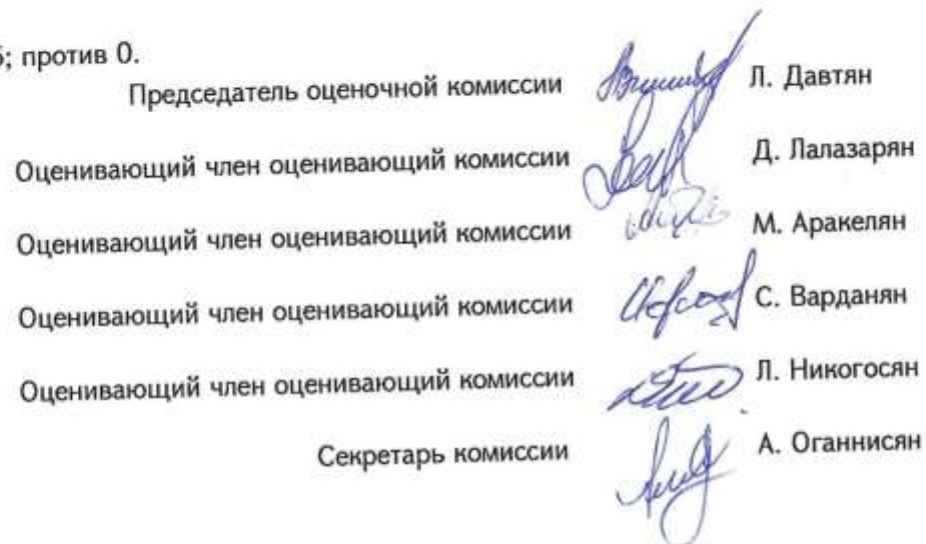 ; против 0.
Председатель оценочной комиссии Л. Давтян
Оценивающий член оценивающий комиссии Д. Лалазарян
Оценивающий член оценивающий комиссии М. Аракелян
Оценивающий член оценивающий комиссии С. Варданян
Оценивающий член оценивающий комиссии Л. Никогосян
Секретарь комиссии А. Оганнисян